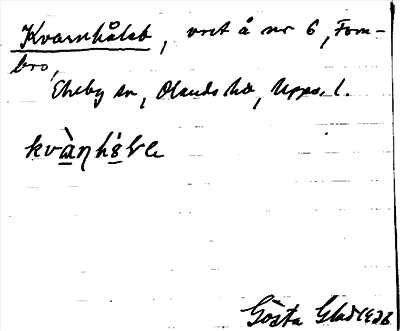 Kvarnhålet, vret å nr 6, Forn-
bro,
Ekeby sn, Olands hd, Upps. l.
kvàṇhó̱ḷe
Gösta Glad 1926